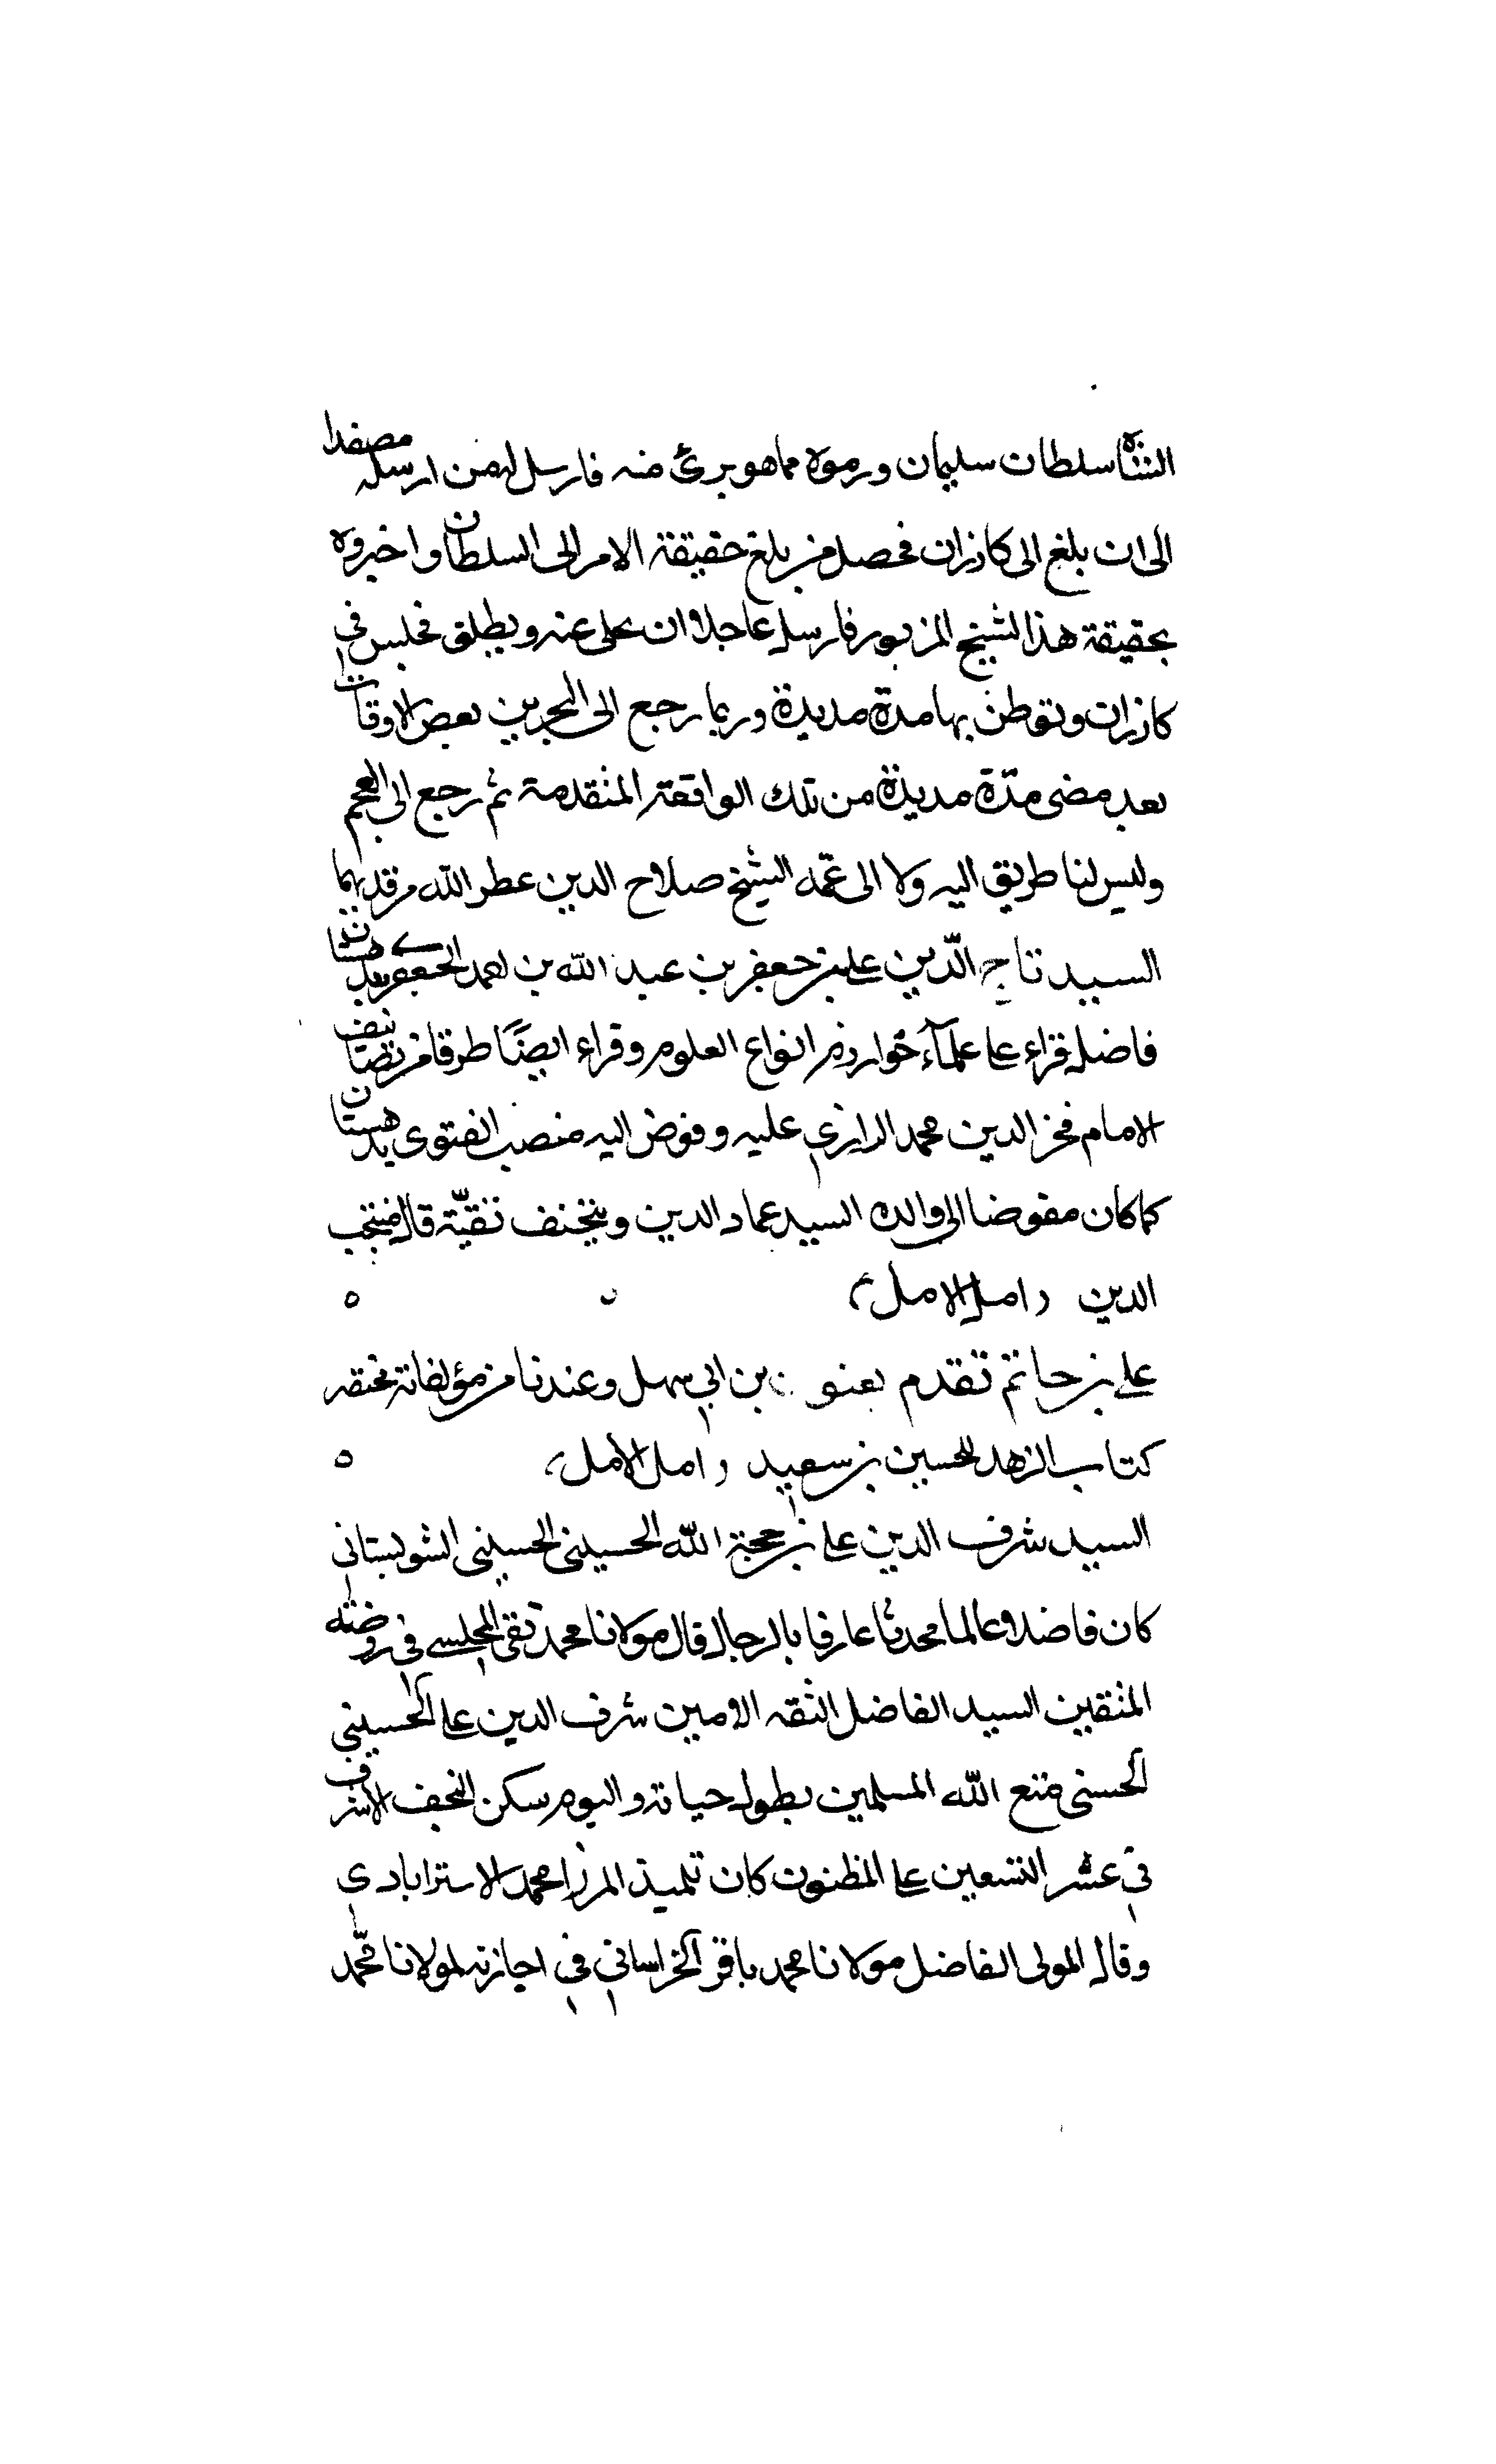 الشاه سلطان سليمان ورموه مما هو برئ منه فارسل له من ارسله مصفدا
الى ان بلغ الى كازران فحصل من بلغ حقيقة الامر الى السلطان واخبروه
بحقيقة هذا الشيخ المزبور فارسل عاجلا وان يخلى عنه ويطلق فجلس في
كازران وتوطن بها مدة مديدة وربما رجع الى البحرين بعض الاوقات
بعد مضى مدّة مديدة من تلك الواقعة المتقدمة ثم رجع الى العجم
وليس لنا طريق اليه ولا الى عمّه الشيخ صلاح الدين عطر الله مرقديهما
السيد تاج الدّين علي بن جعفر بن عبد الله بن احمد الجعفرى بدهستان
فاضل قراء على علمآء خوارزم انواع العلوم وقراء ايضًا طرقا من تصانيف
الامام فخر الدين محمد الرازي عليه وفوض اليه منصب الفتوى بدهستان
كما كان مفوضا الى والده السيد عماد الدين ويتحنف تقيّة قال منتجب
الدين و امل الامل
علي بن حاتم تقدم بعنو ن بن ابي سهل وعندنا من مؤلفاته مختصر
كتاب الزهد للحسين بن سعيد و امل الأمل ه
السيد شرف الدين علي بن حجة الله الحسيني الحسيني الشولستاني
كان فاضلا وعالما محدثا عارفا بالرجال قال مولانا محمد تقي المجلسي في روضته
المتقين السيد الفاضل الثقه الامين شرف الدين على الحسيني
الحسنى متع الله المسلمين بطول حياته واليوم سكن النجف الاشرف
في عشر التسعين على المظنون كان تلميذ المرزا محمد الاسترابادي
وقال المولى الفاضل مولانا محمد باقر الخراساني في اجازته لمولانا محمّد